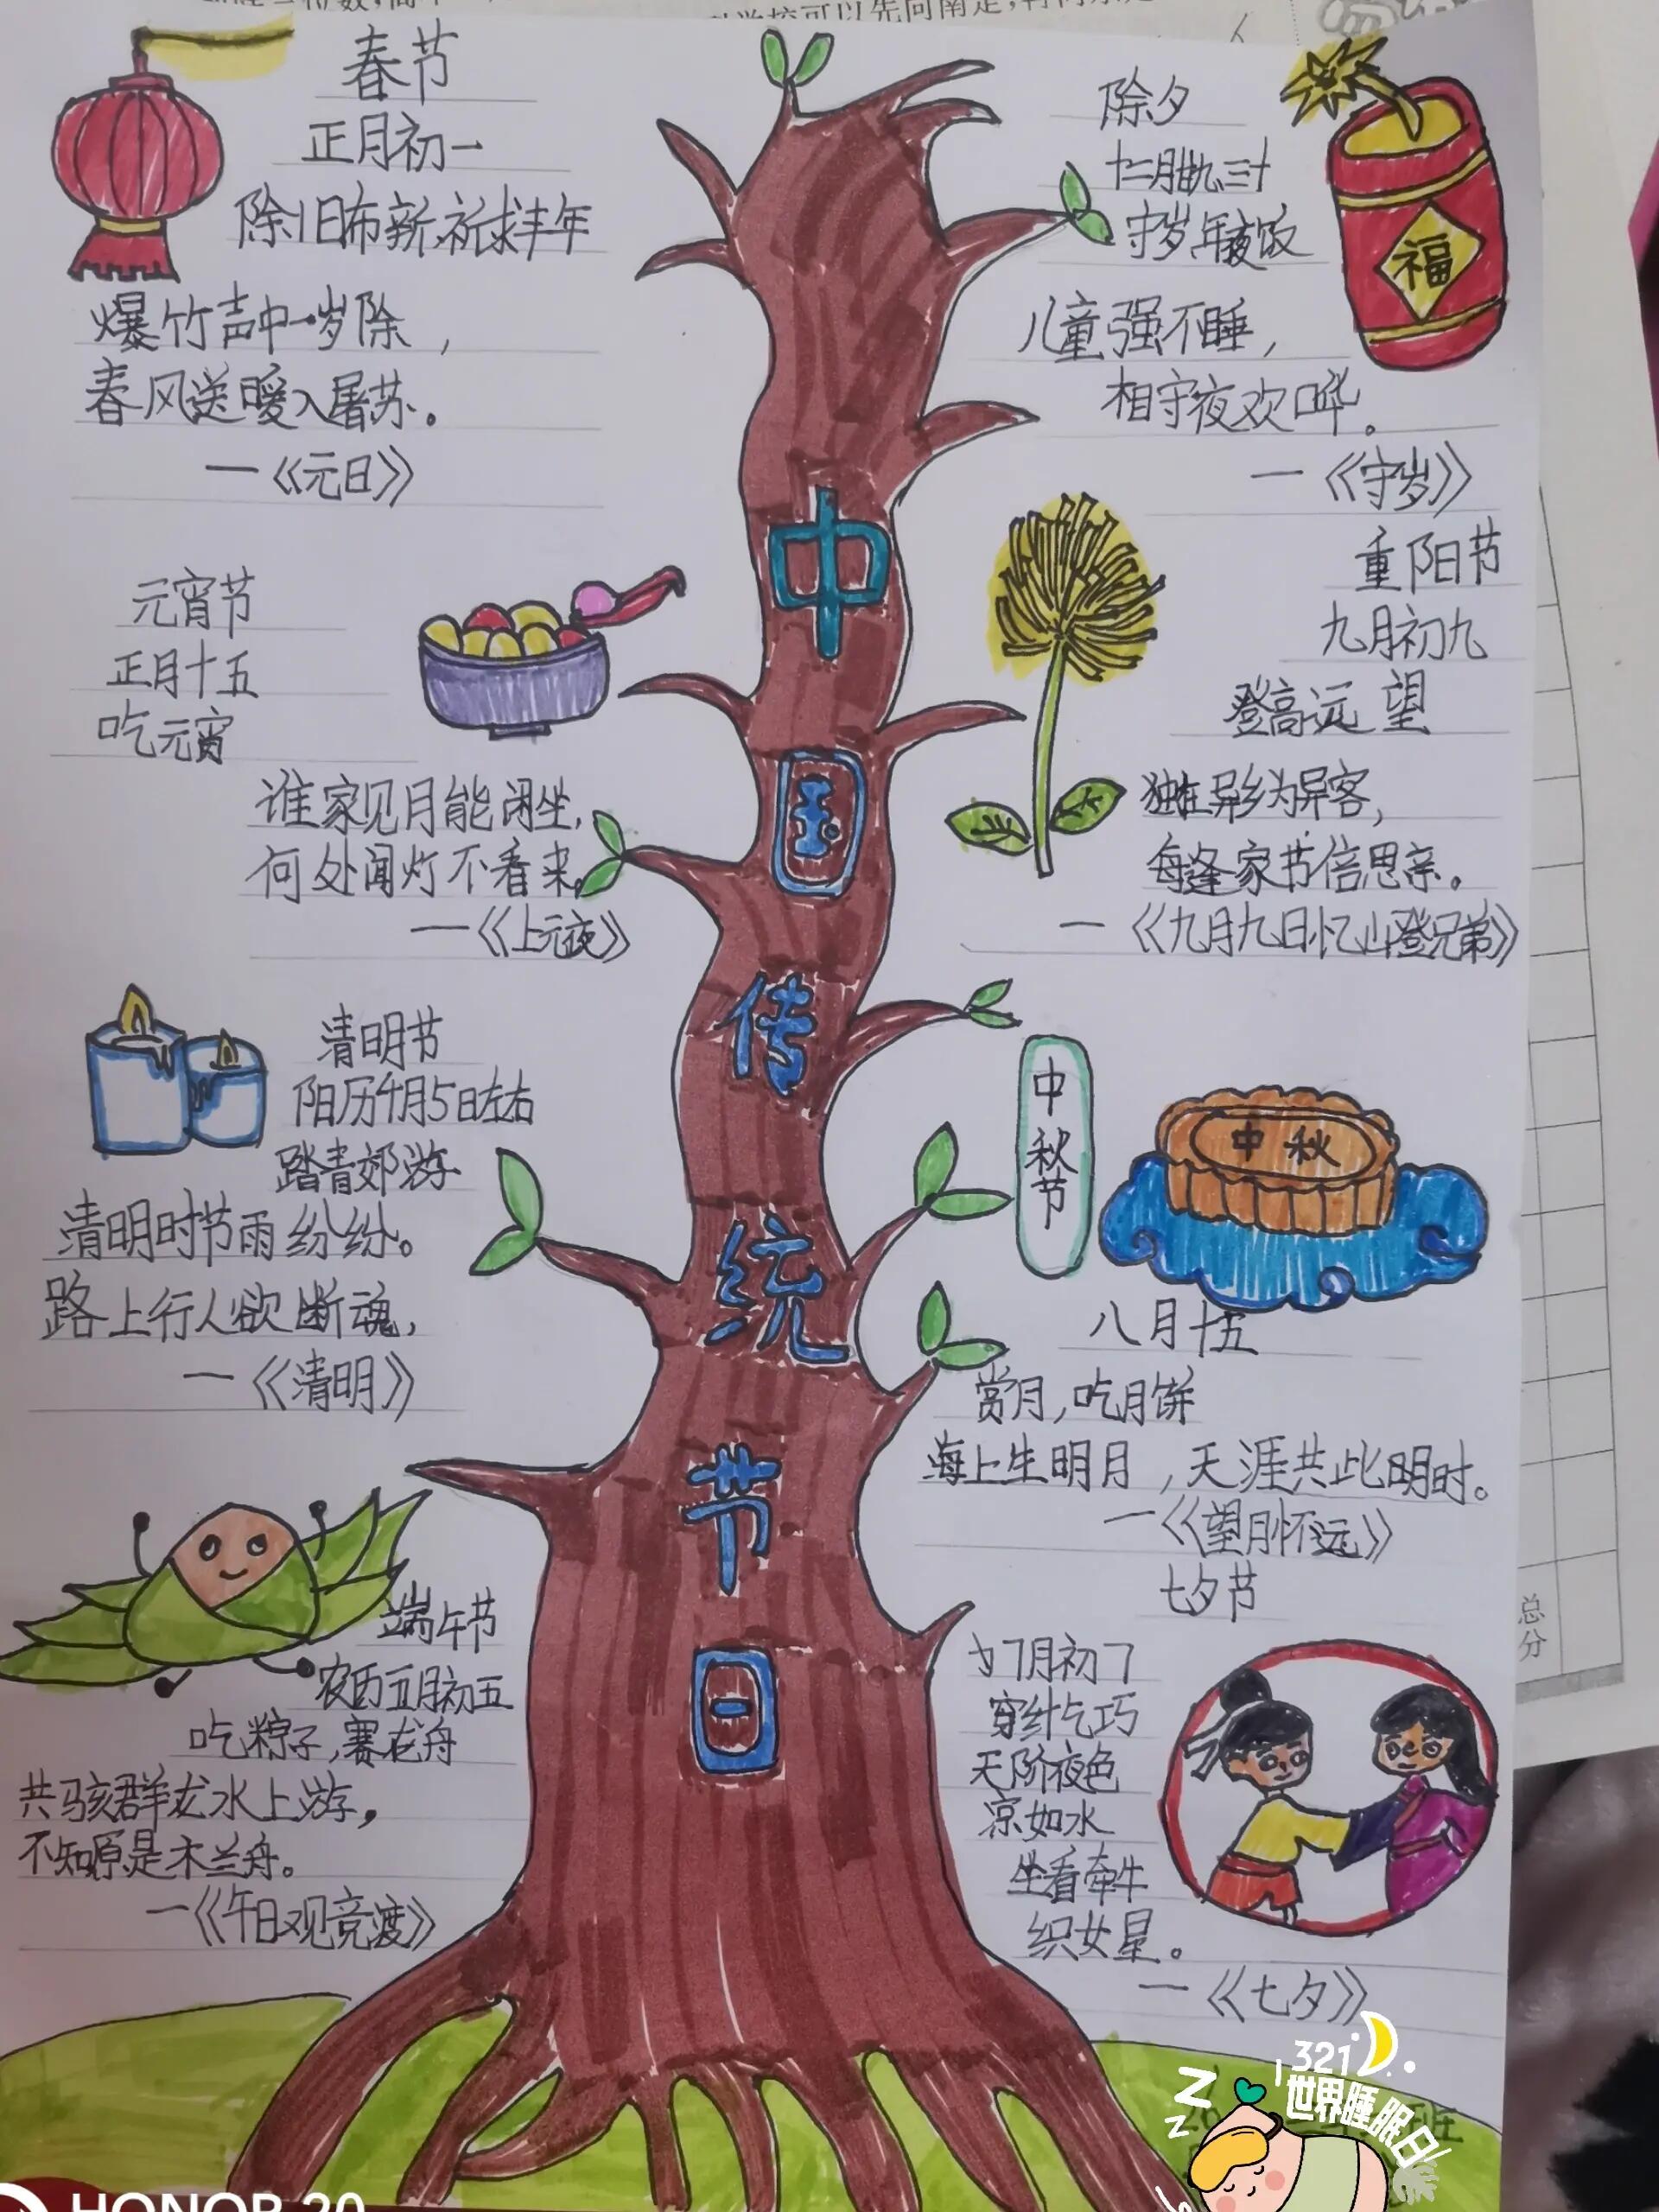 春节
正月初一
除旧布新,祈求丰年
爆竹声中一岁除,
春风送暖入屠苏。
—《元日》
元宵节
正月十五
吃元宵
谁家见月能闭坐,
何处闻灯不看来。
—《上元夜》
清明节
阳历4月5日左右
踏青郊游
清明时节雨纷纷。
路上行人欲断魂,
—《清明》
端午节
农历五月初五
吃粽子,赛龙舟
共骇群龙水上游,
不知原是木兰舟。
—《午日观竞渡》
中国传统节日
除夕
十二月廿九、三十
守岁,年夜饭
福
儿童强不睡,
相守夜欢哗。
—《守岁》
重阳节
九月初九
登高远望
独在异乡为异客,
每逢家节倍思亲。
—《九月九日忆山登兄弟》
中秋节
中秋
八月十五
赏月,吃月饼
海上生明月,天涯共此明时。
—《望月怀远》
七夕节
7月初7
穿针乞巧
天阶夜色
凉如水
坐看牵牛
织女星。
—《七夕》
321
世界睡眠日
Z
Z
班
总分
HONOR 20